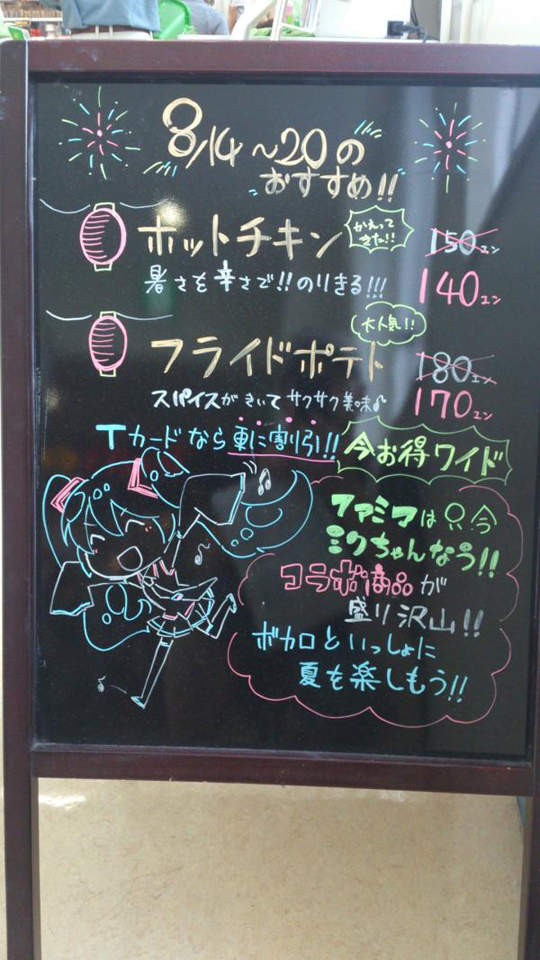 8/14～20の
おすすめ!!
ホットチキン
かえって
きた!!
150エン
140エン
暑さを辛さで!!のりきる!!!
大人気!!
フライドポテト
180エン
170エン
スパイスがきいてサクサク美味♪
Tカードなら更に割引!!
今お得ワイド
ファミマは只今
ミクちゃんなう!!
コラボ商品が
盛り沢山!!
ボカロといっしょに
夏を楽しもう!!